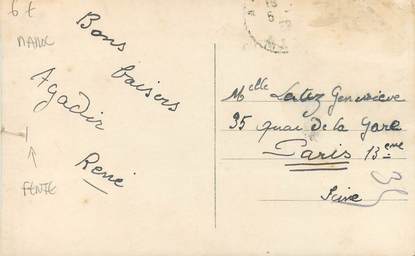 6 €
MAROC
Bons
baisers
Agadir
René
FENTE
Melle Geneviève
95 quai de la Gare
Paris 13eme
Seine